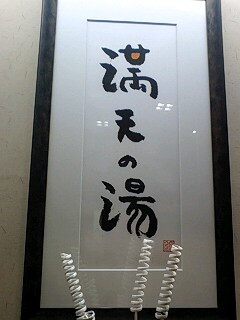 満天の湯